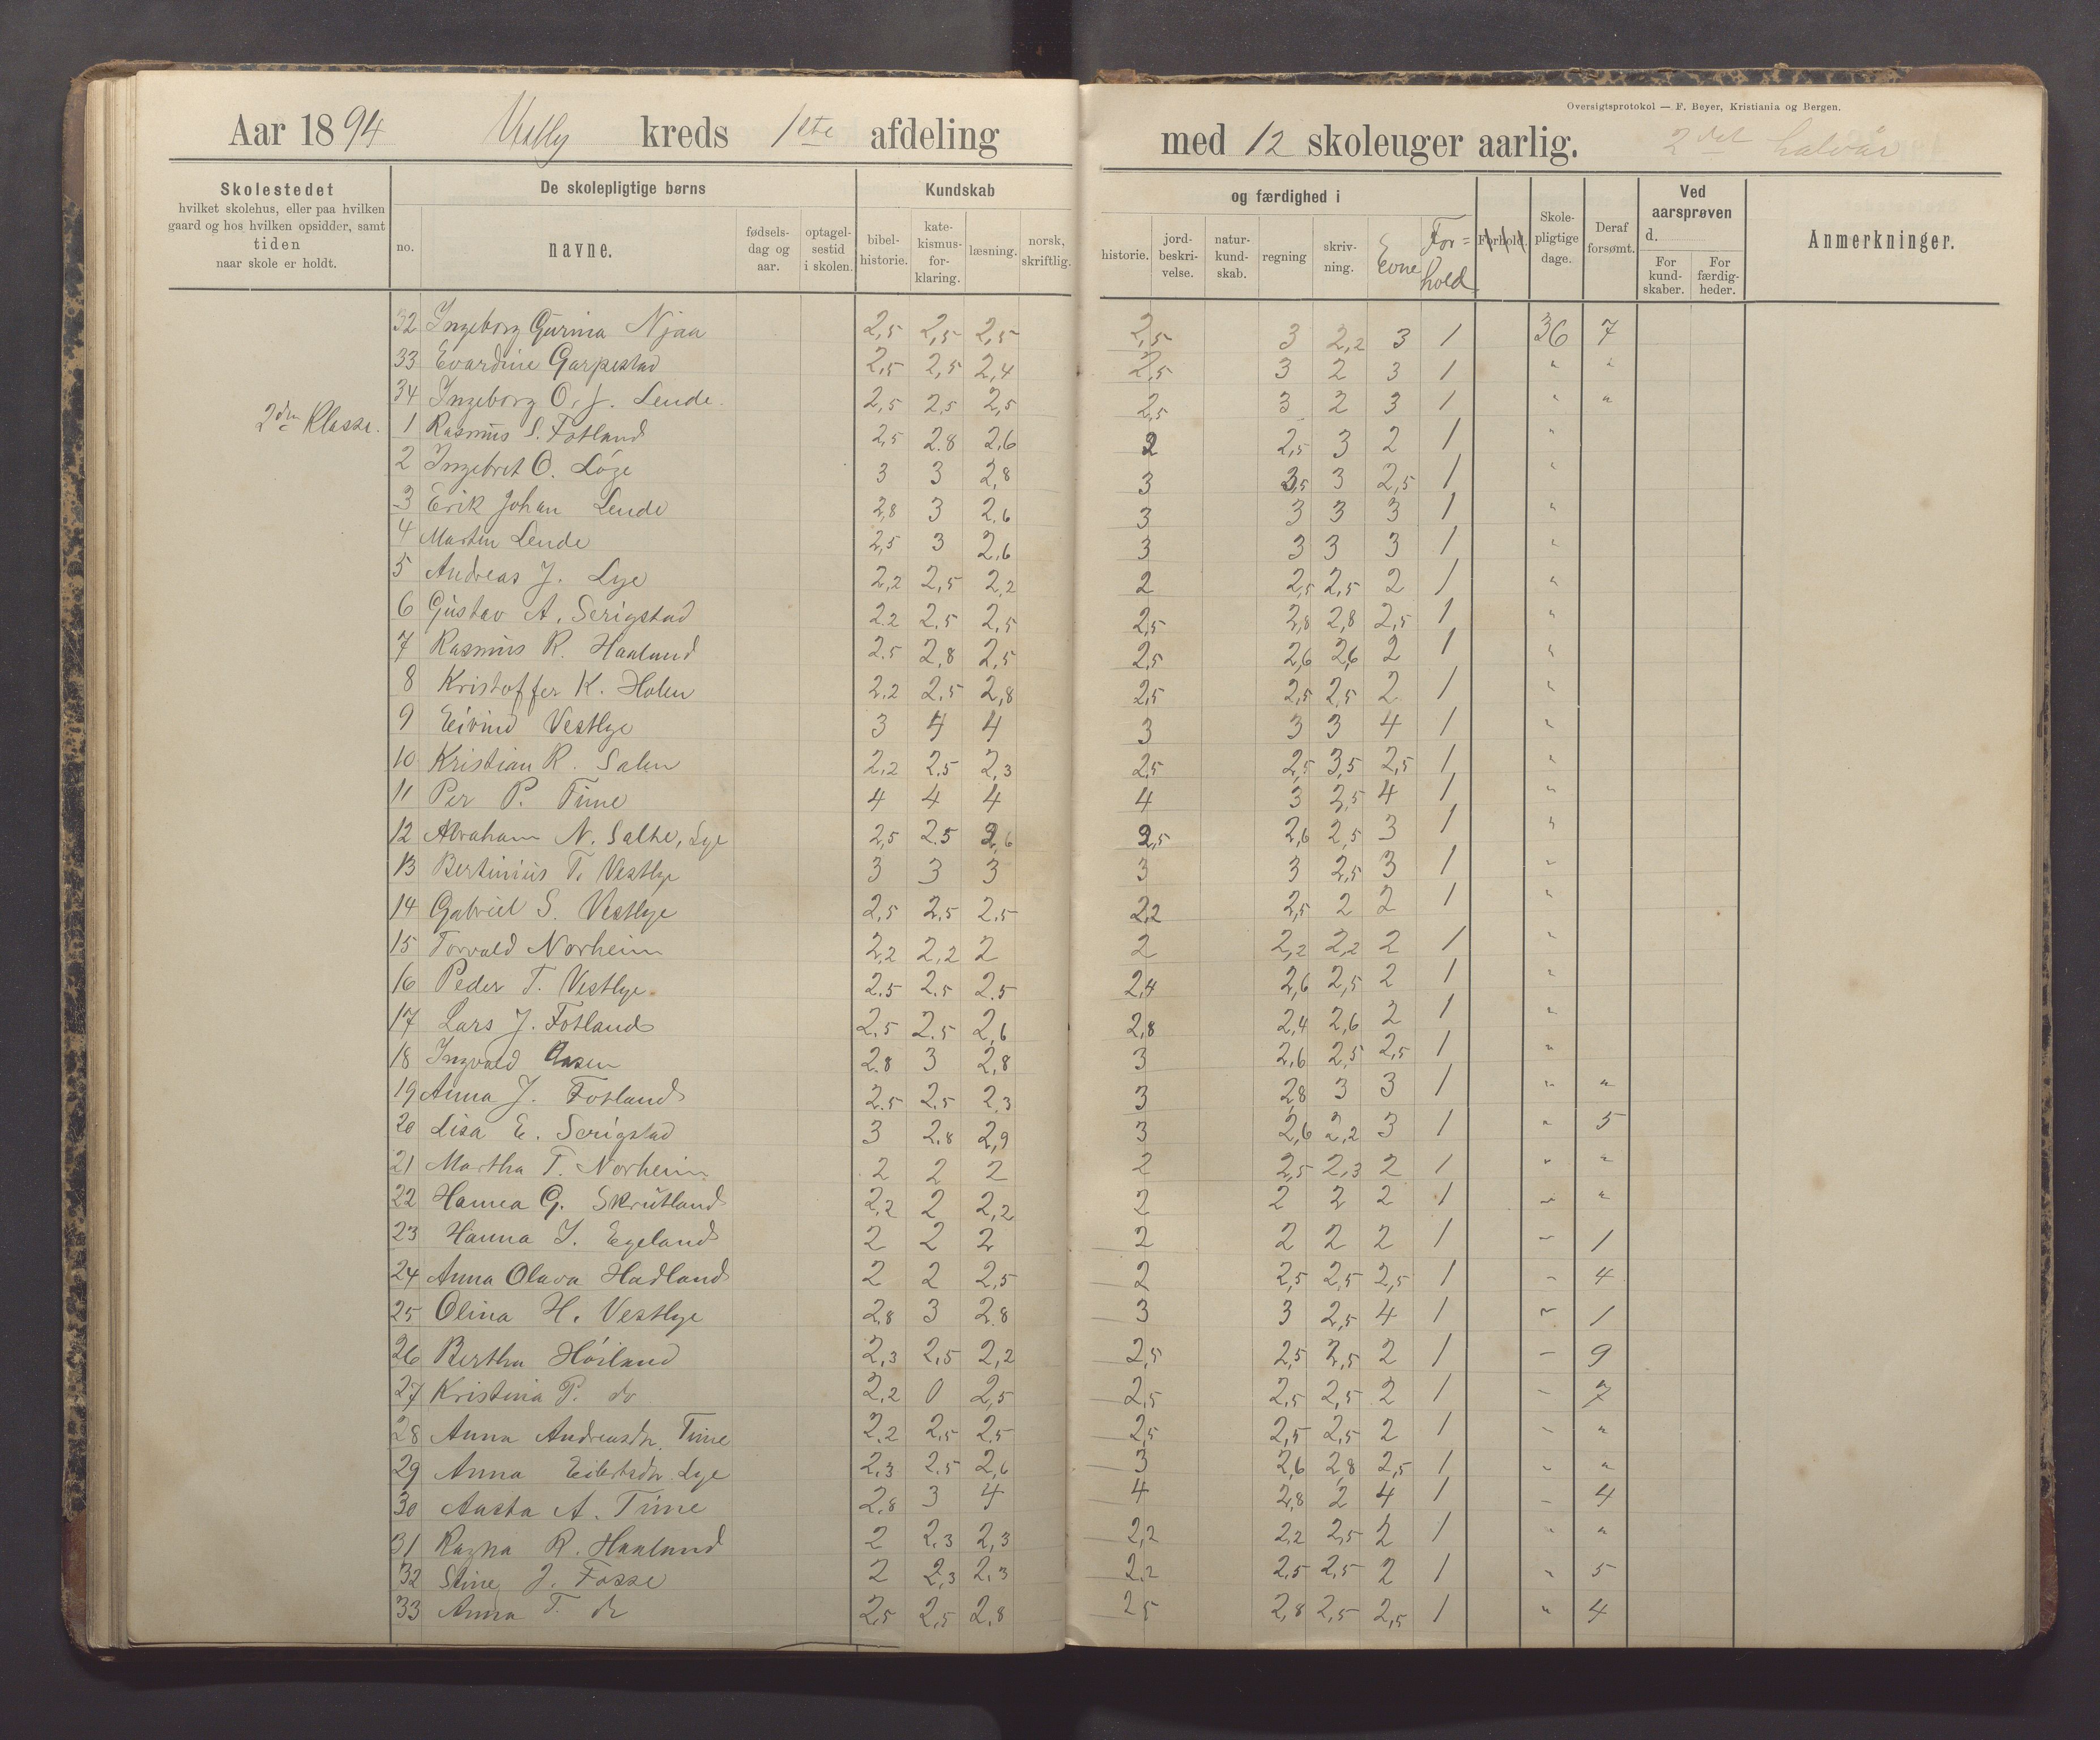 Oversigtsprotokol — F. Beyer, Kristiania og Bergen.
Aar 1894 kreds 1ste afdeling med 12 skoleuger aarlig. 2det halvår
Skolestedet hvilket skolehus, eller paa hvilken gaard og hos hvilken opsidder, samt tiden naar skole er holdt.
De skolepligtige børns
no. navne. fødsels-dag og aar. optagel-sestid i skolen.
Kundskab og færdighed i
bibel-historie. kate-kismus-for-klaring. læsning. norsk, skriftlig. historie. jord-beskri-velse. natur-kund-skab. regning skriv-ning. Evne For=hold Forhold.
Skole-pligtige dage. Deraf forsømt. Ved aarsprøven d. For kund-skaber. For færdig-heder. Anmerkninger.
32 Ingeborg Gurina Njaa 2,5 2,5 2,5 2,5 3 2,2 3 1 36 7
33 Evardine Garpestad 2,5 2,5 2,4 2,5 3 2 3 1 " "
34 Ingeborg O. J. Lende. 2,5 2,5 2,5 2,5 3 2 3 1 " "
2den Klasse. 1 Rasmus S. Fotland 2,5 2.8 2,6 2 2,5 3 2 1 "
2 Ingebret O. Löge 3 3 2,8 3 3,5 3 2,5 1 "
3 Erik Johan Lende 2,8 3 2,6 3 3 3 3 1 "
4 Martin Lende 2,5 3 2,6 3 3 3 3 1 "
5 Andreas J. Lye 2,2 2,5 2,2 2 2,5 2,5 2 1 "
6 Gustav A. Serigstad 2.2 2.5 2,5 2,5 2,8 2,8 2,5 1 "
7 Rasmus R. Haaland 2.5 2,8 2,5 2,5 2,6 2,6 2 1 "
8 Kristoffer K. Holen 2,2 2.5 2,8 2,5 2,5 2,5 2 1 "
9 Eivind Vestlye 3 4 4 3 3 3 4 1 "
10 Kristian R. Salen 2,2 2.5 2,3 2,5 2,5 3,5 2,5 1 "
11 Per P. Time 4 4 4 4 3 2,5 4 1 "
12 Abraham N. Salte, Lye 2,5 2.5 2,6 2,5 2,6 2,5 3 1 "
13 Bertinius T. Vestlye 3 3 3 3 3 2,5 3 1 "
14 Gabriel S. Vestlye 2,5 2,5 2.5 2,2 2,5 2 2 1 "
15 Torvald Norheim 2,2 2,2 2 2 2,2 2,2 2 1 "
16 Peder T. Vestlye. 2.5 2.5 2.5 2,4 2,6 2,5 2 1 "
17 Lars J. Fotland 2.5 2.5 2,6 2,8 2,4 2,6 2 1 "
18 Ingvald Aasen 2.8 3 2,8 3 2,6 2,5 2,5 1 "
19 Anna J. Fotland 2.5 2.5 2,3 3 2,8 3 3 1 " "
20 Lisa E. Serigstad 3 2.8 2,9 3 2,6 2,2 3 1 " 5
21 Martha T. Norheim 2 2 2 2 2,5 2,3 2 1 " "
22 Hanna G. Skrutland 2,2 2 2,2 2 2 2 2 1 " "
23 Hanna J. Egeland 2 2 2 2 2 2 2 1 " 1
24 Anna Olava Hadland 2 2 2,5 2 2,5 2,5 2,5 1 " 4
25 Olina H. Vestlye 2,8 3 2.8 3 3 2,5 4 1 " 1
26 Bertha Höiland 2,3 2,5 2,2 2,5 2,5 2,5 2 1 " 9
27 Kristina P. do 2,2 0 2,5 2,5 2,5 2,5 2 1 " 7
28 Anna Andreasdtr. Time 2.2 2,5 2.5 2,5 2,5 2,5 2 1 " "
29 Anna Eilertsdtr. Lye 2.3 2.5 2,6 3 2,6 2,8 2,5 1 " "
30 Aasta A. Time 2,8 3 4 4 2,8 2 4 1 " 4
31 Ragna R. Haaland 2 2,3 2,3 2,2 2,2 2,5 2 1 " "
32 Stine J. Fosse 2 2,3 2.3 2,2 2,5 2,5 2 1 " 5
33 Anna T. do 2,5 2,5 2,8 2,5 2,8 2,5 2,5 1 " 4